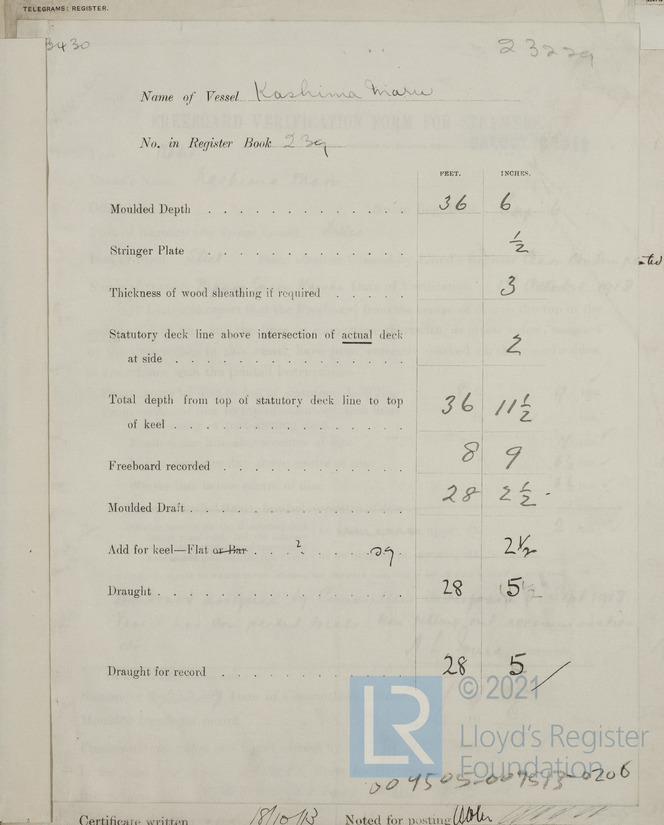 TELEGRAMS: REGISTER.
3430
23229
Name of Vessel Kashima Maru
No. in Register Book 239
FEET. INCHES.
Moulded Depth 36 6
Stringer Plate ½
Thickness of wood sheathing if required 3
Statutory deck line above intersection of actual deck
at side 2
Total depth from top of statutory deck line to top
of keel 36 11½
Freeboard recorded 8 9
Moulded Draft 28 2½
Add for keel—Flat or Bar 2½
Draught 28 5
Draught for record 28 5
© 2021
LR
Lloyd's Register
Foundation
004505-004513-0206
Certificate written 18/10/13 Noted for posting